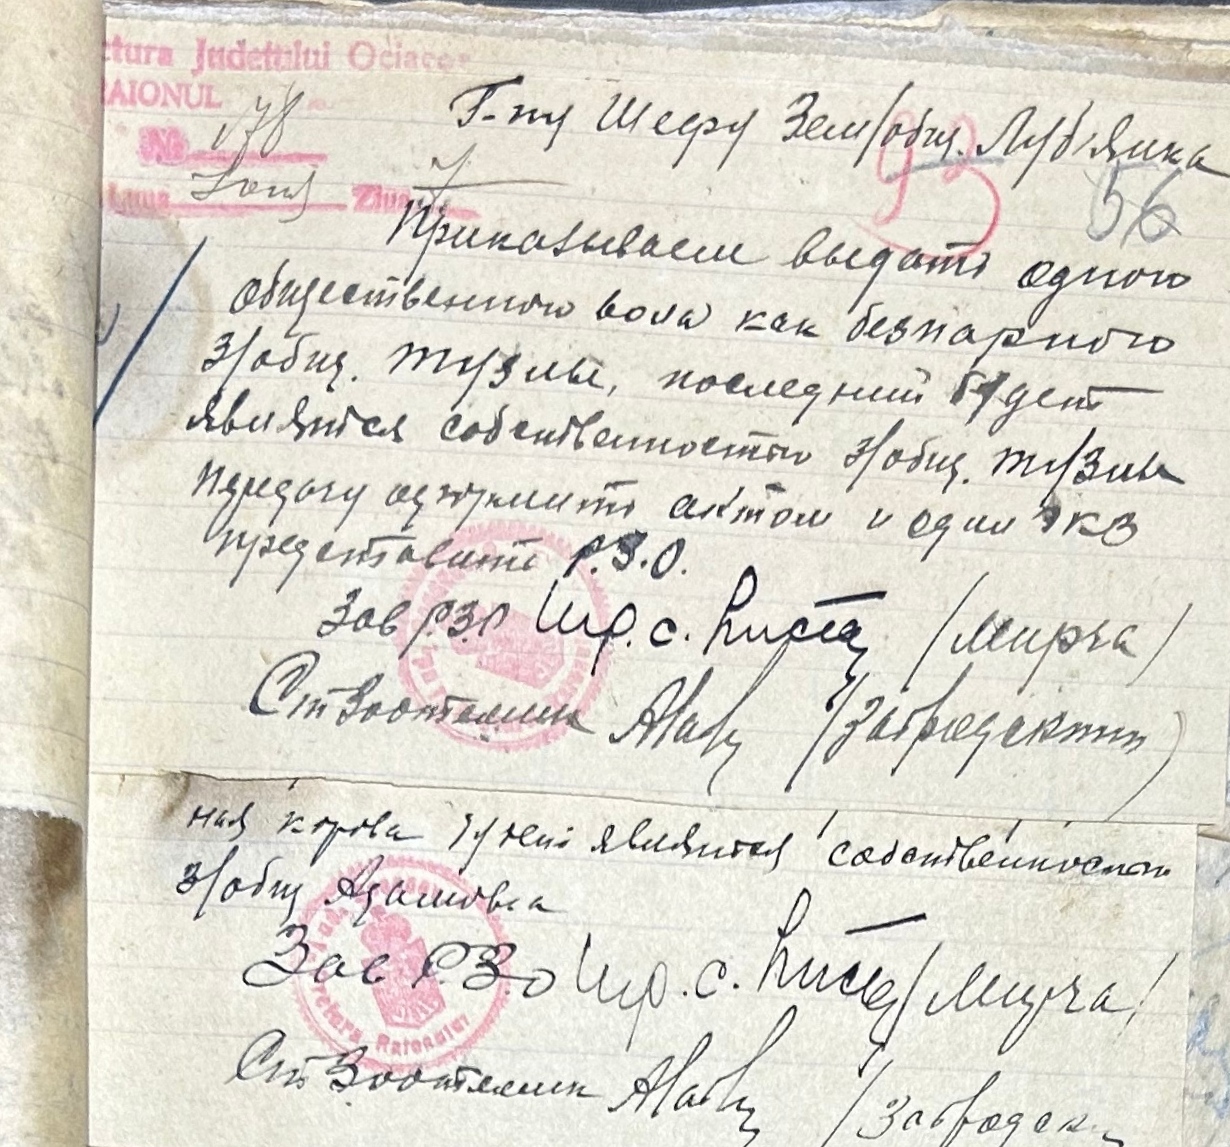 ctura Judetului Ociacov
RAIONUL
No 178
Luna Ziua 7
Г-ну Шефу Зем/общ. Лубянка
93
56
Приказываем выдать одного
общественного вола как безпарного
З/общ. Тузлы, последний будет
являтся собственностью з/общ. Тузлы
передачу оформить актом и один экз
представить Р.З.О.
Зав Р.З.О /Мирча/
Ст Зоотехник
ная корова будет являтся собственностью
з/общ Адамовка
Зав РЗО /Мирча/
Ст Зоотехник